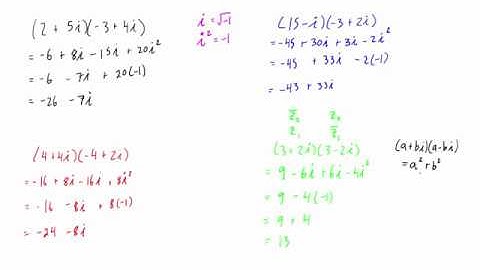 (2 + 5i)(-3 + 4i)
= -6 + 8i - 15i + 20i²
= -6 - 7i + 20(-1)
= -26 - 7i
i = √-1
i² = -1
(15 - i)(-3 + 2i)
= -45 + 30i + 3i - 2i²
= -45 + 33i - 2(-1)
= -43 + 33i
(4+4i)(-4+2i)
= -16 + 8i - 16i + 8i²
= -16 - 8i + 8(-1)
= -24 - 8i
z̄₂ z₂
z₁ z̄₁
(3+2i)(3-2i)
= 9 - 6i + 6i - 4i²
= 9 - 4(-1)
= 9 + 4
= 13
(a+bi)(a-bi)
= a² + b²